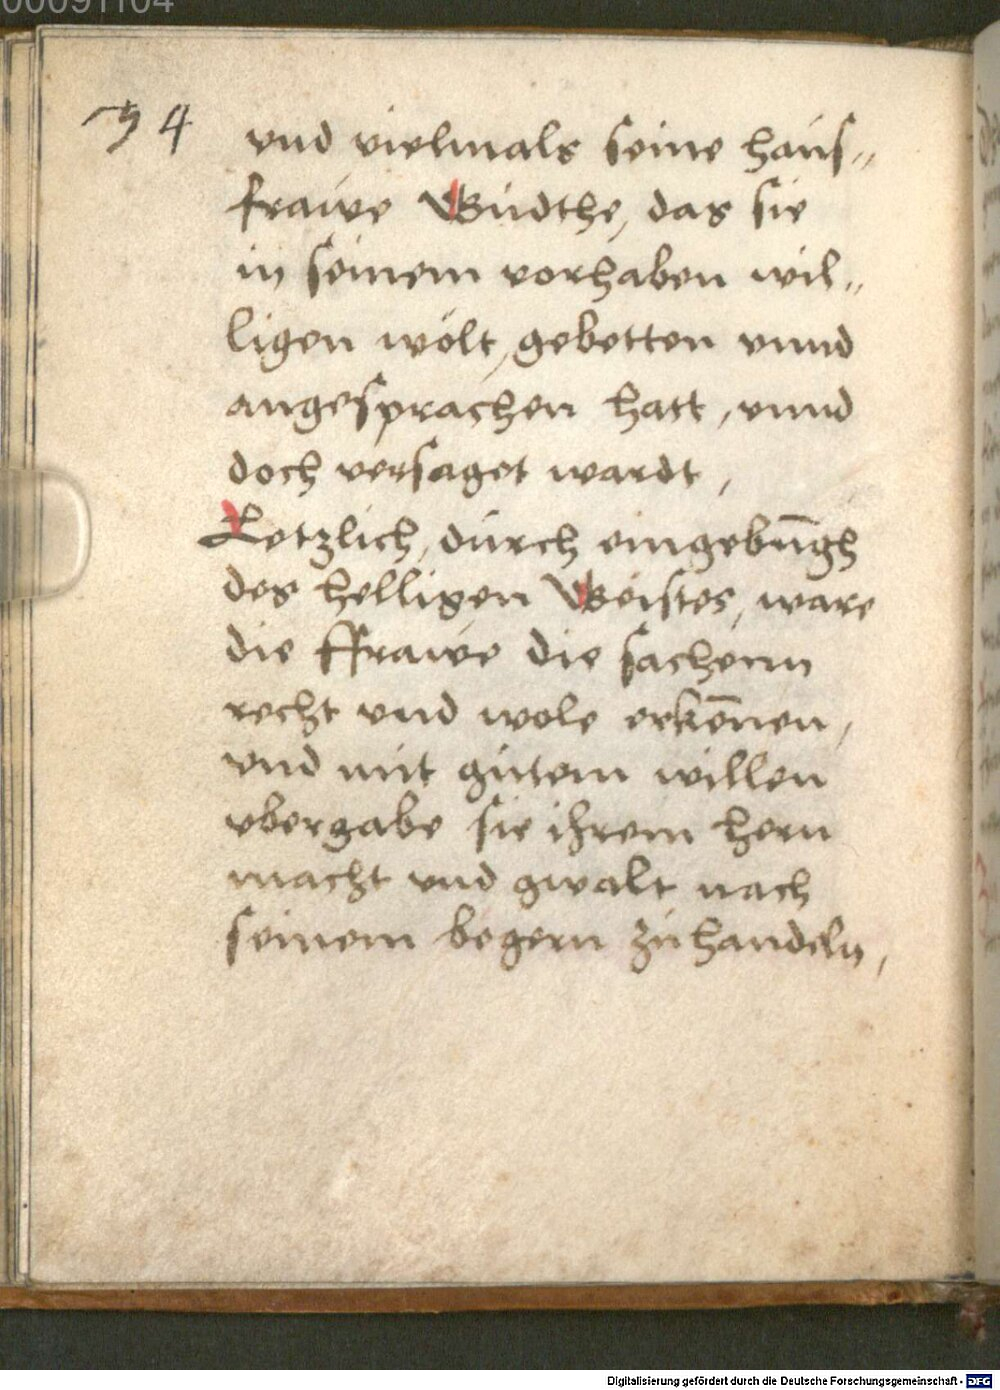 00091104
34
vnd vielmals seine haús-
frawe Gúdthe, das sie
in seinem vorhaben wil-
ligen wolt, gebetten vnnd
angesprachen hatt, vnnd
doch versaget wardt,
Letzlich, dúrch eingebu̅gh
des helligen Geistes, ware
die ffrawe die sachenn
recht vnd wole erke̅nen,
vnd mit gútem willen
vbergabe sie ihrem hern
macht vnd gwalt nach
seinem begern zú handeln,
Digitalisierung gefördert durch die Deutsche Forschungsgemeinschaft - DFG